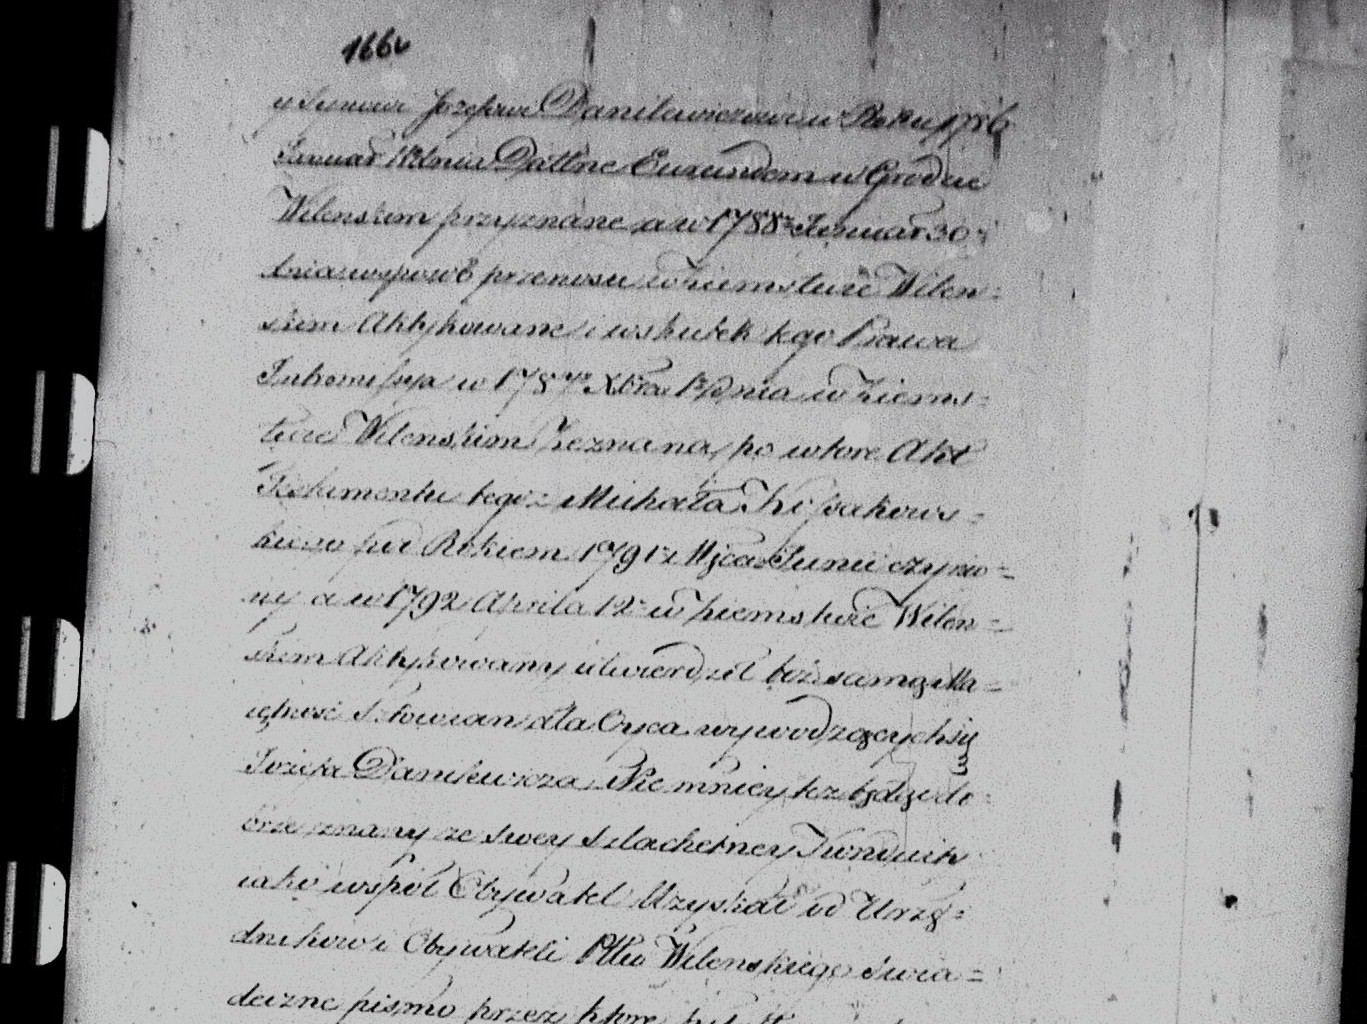 166
y Synowi Jozefowi Danilewiczowi w Roku 1786
Januar Dnia Datt Eurundem w Grodzie
Wilenskim przyznane a w 1788 Januar 30
dnia wsposób przenosu w Ziemstwie Wilen=
skim Aktykowane i wskutek tego Prawa
Intromissya w 1787 Xbra dnia w Ziems=
twie Wilenskim Zeznana, po wtore Akt
Testamentu tegoż Michała Kossakows=
kiego pod Rokiem 1791 Msca Junii czynio=
ny a w 1792 Aprila 12 w Ziemstwie Wilen=
skim Aktykowany utwierdził też samą Ma=
iętność dla Oyca wywodzących się
Jozefa Danilewicza. Nie mniey też będąc do=
brze znany ze swey szlachetney Konduity
iako wspoł Obywatel Uzyskał od Urzę=
dnikow i Obywateli Pttu Wilenskiego swia=
deczne pismo przez ktore